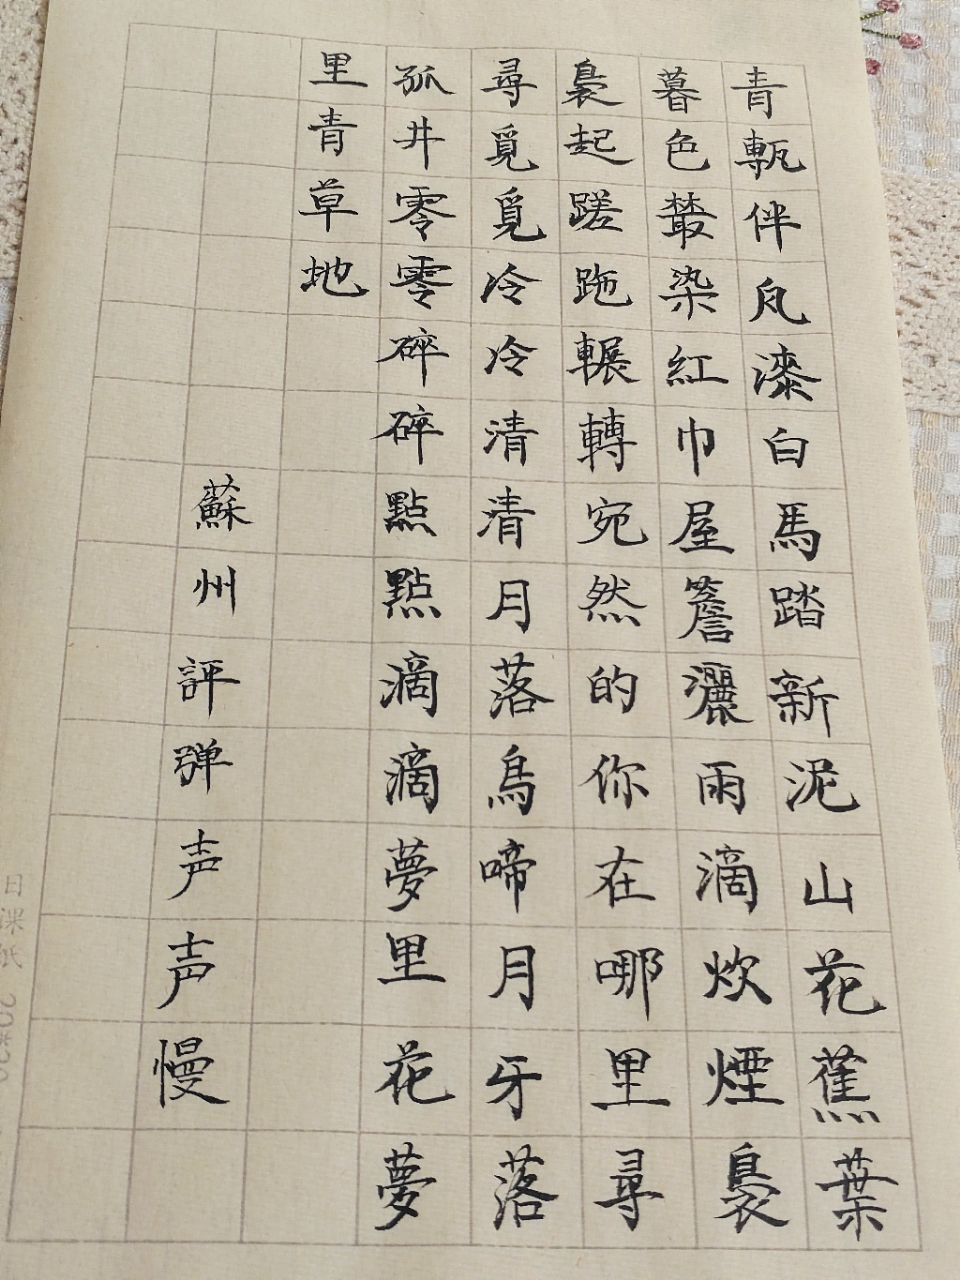 青甎伴瓦漆白馬踏新泥山花蕉葉
暮色叢染紅巾屋簷灑雨滴炊煙裊
裊起蹉跎輾轉宛然的你在哪里尋
尋覓覓冷冷清清月落烏啼月牙落
孤井零零碎碎點點滴滴夢里花夢
里青草地
蘇州評弹声声慢
日课纸